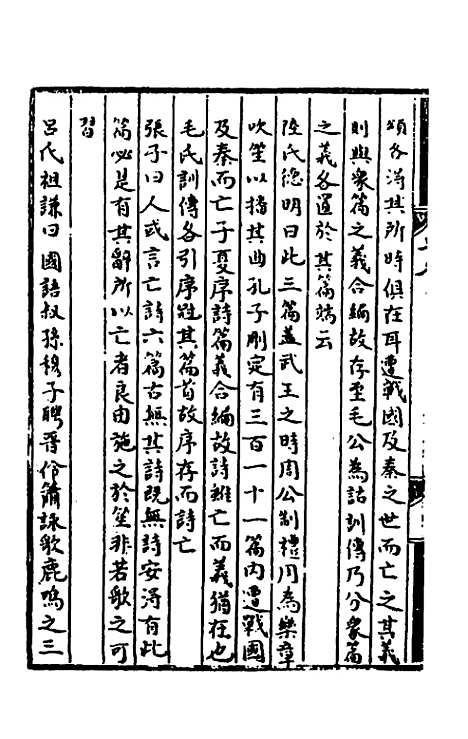 頌各得其所時俱在耳遭戰國及秦之世而亡之其義
則與衆篇之義合編故存至毛公為詁訓傳乃分衆篇
之義各置於其篇端云
陸氏德明曰此三篇盖武王之時周公制禮用為樂章
吹笙以播其曲孔子刪定有三百一十一篇內遭戰國
及秦而亡子夏序詩篇義合編故詩雖亡而義猶在也
毛氏訓傳各引序冠其篇首故序存而詩亡
張子曰人或言亡詩六篇古無其詩既無詩安得有此
篇必是有其辭所以亡者良由施之於笙非若歌之可
習
呂氏祖謙曰國語叔孫穆子聘晋伶簫詠歌鹿鳴之三